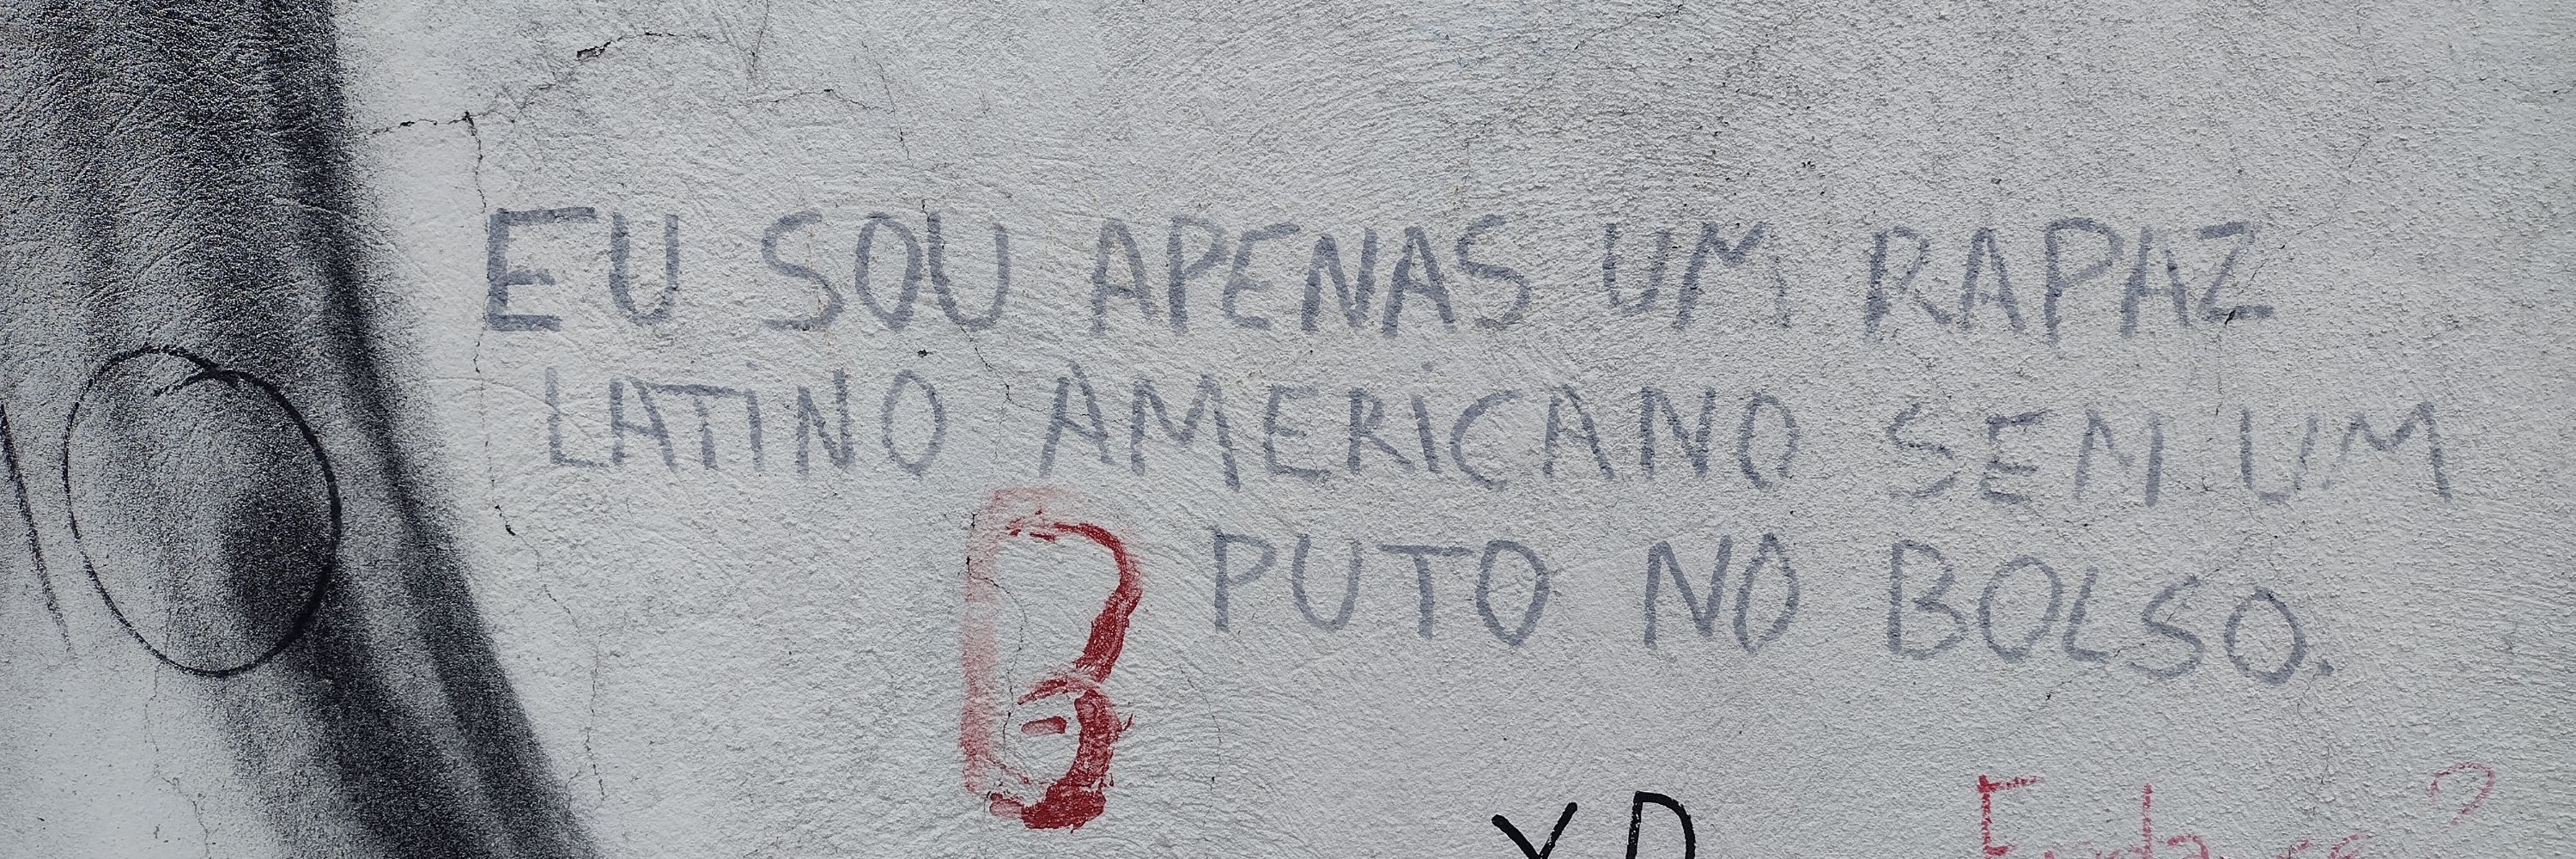 EU SOU APENAS UM RAPAZ
LATINO AMERICANO SEM UM
PUTO NO BOLSO.
B
XD